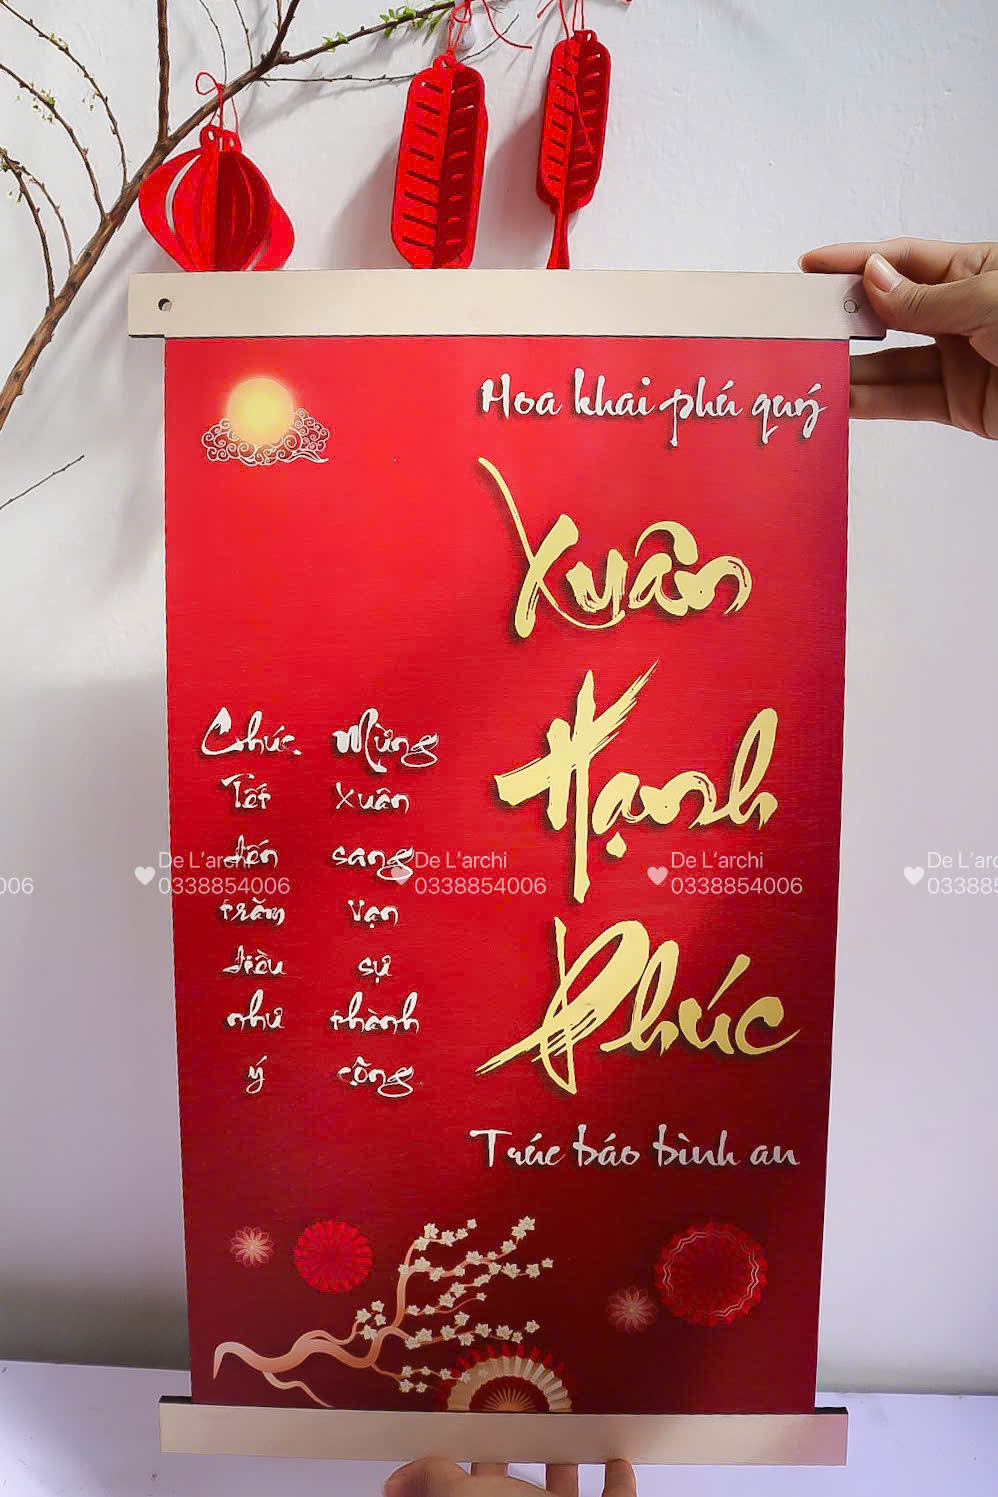 Hoa khai phú quý
Xuân
Hạnh
Phúc
Trúc báo bình an
Mừng
Xuân
sang
vạn
sự
thành
công
Chúc
Tết
đến
trăm
điều
như
ý
De L'archi
0338854006
De L'archi
0338854006
De L'archi
0338854006